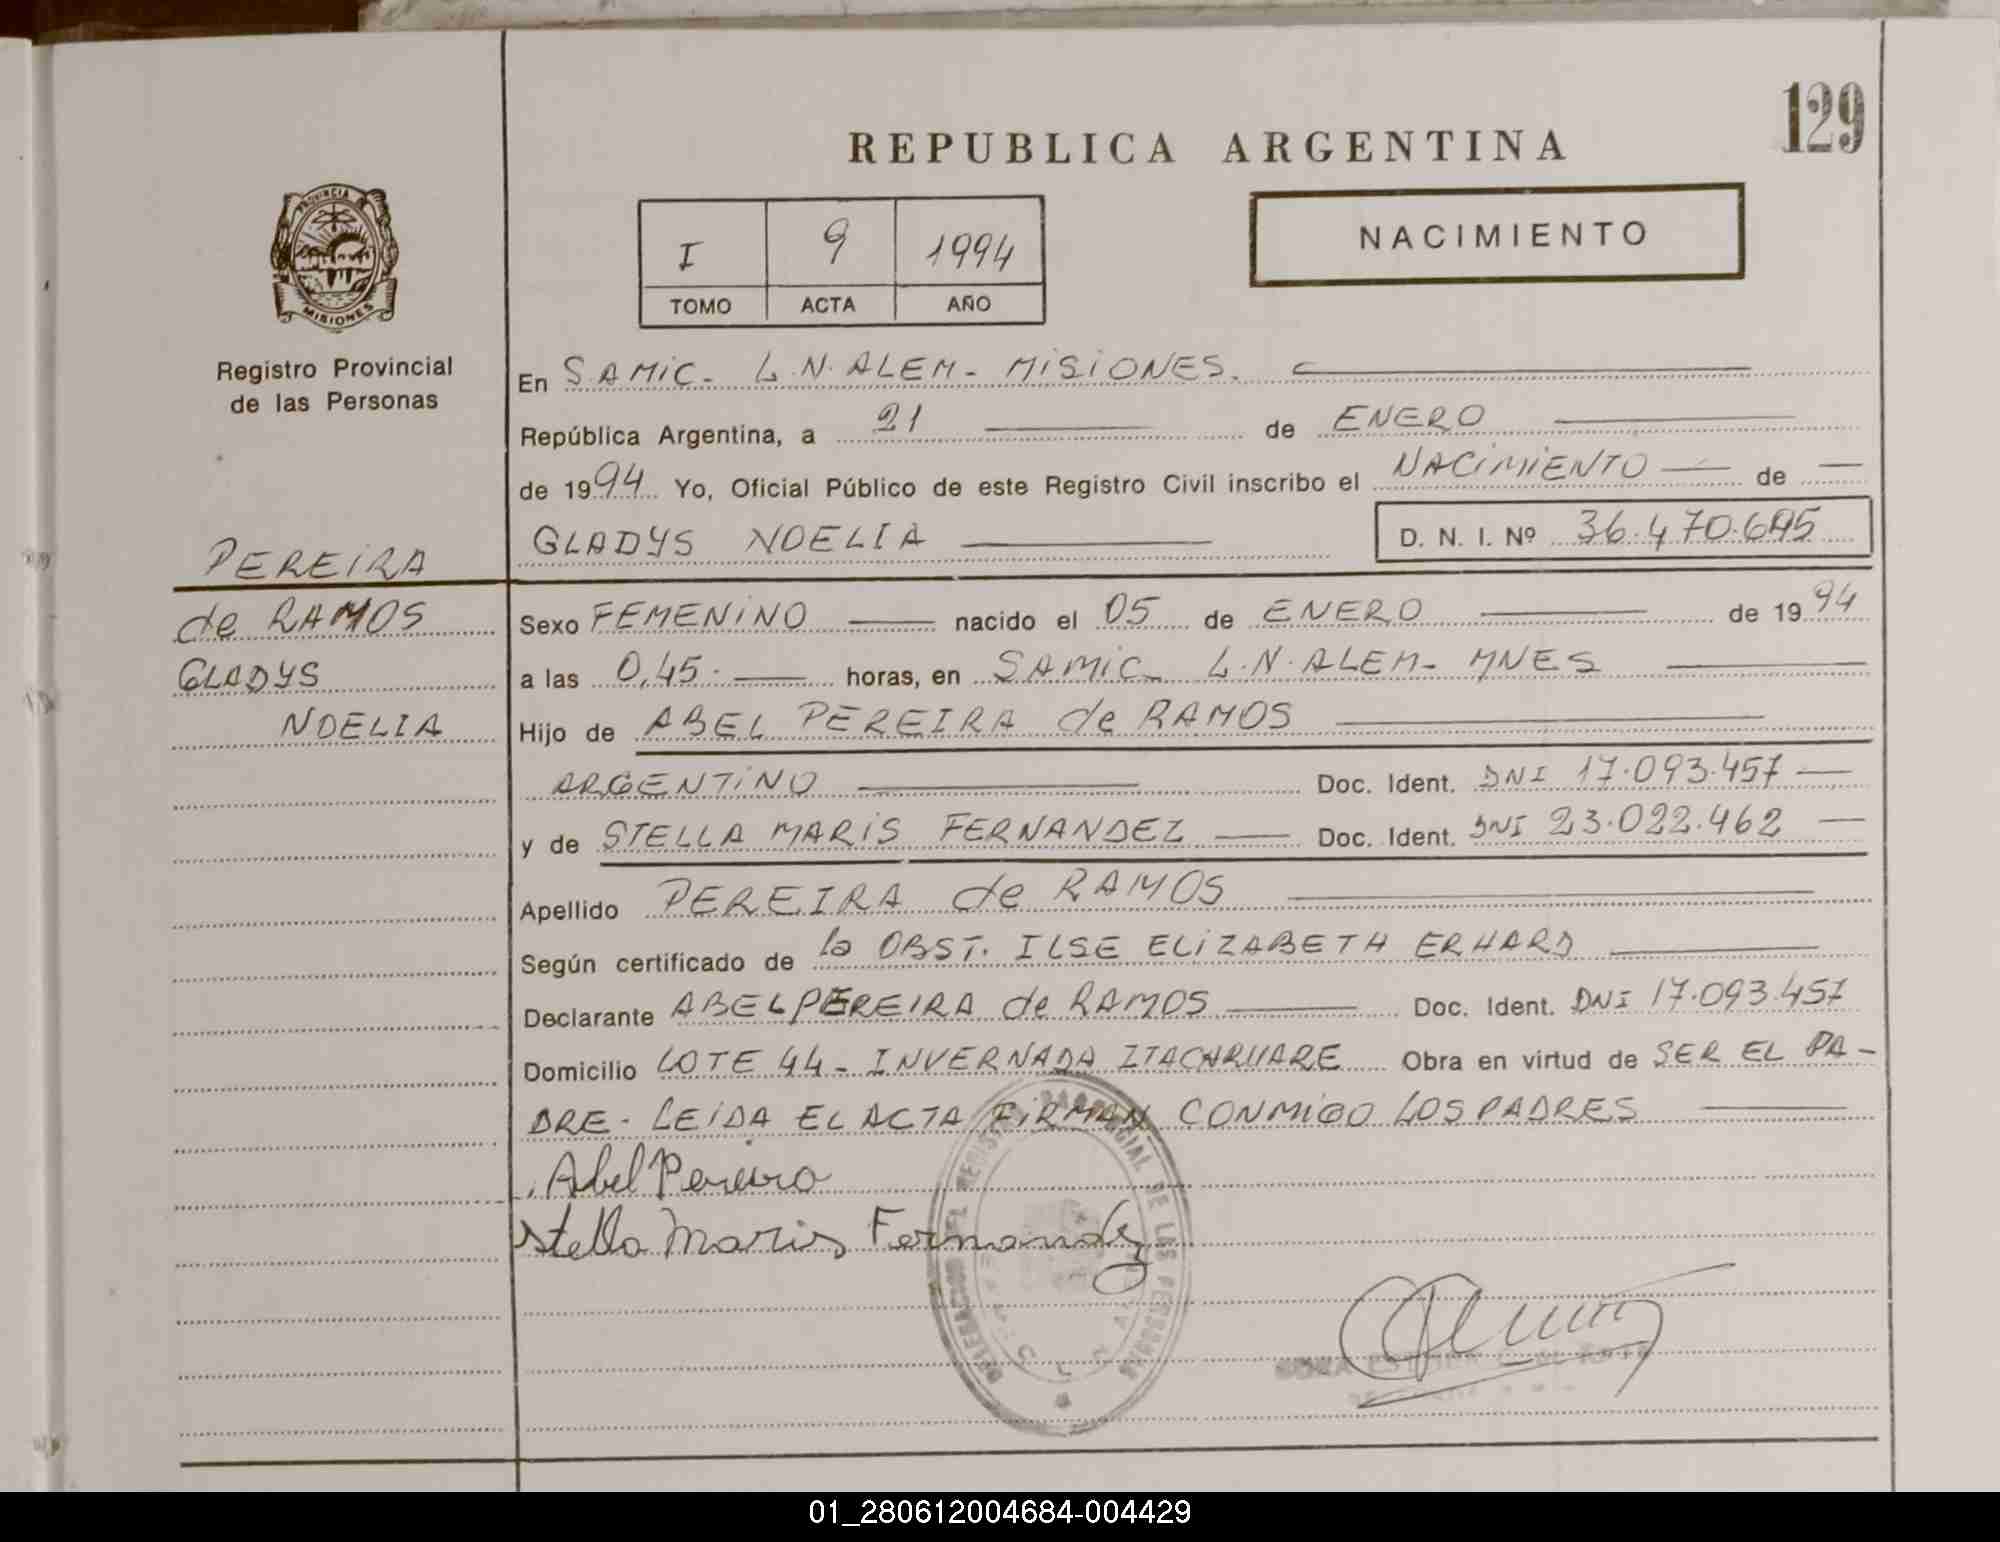 129
REPUBLICA ARGENTINA
PROVINCIA DE
MISIONES
I 9 1994
TOMO ACTA AÑO
NACIMIENTO
Registro Provincial
de las Personas
En SAMIC - L.N. ALEM - MISIONES.
República Argentina, a 21 de ENERO
de 1994 Yo, Oficial Público de este Registro Civil inscribo el NACIMIENTO de
GLADYS NOELIA D. N. I. Nº 36.470.695
PEREIRA
de RAMOS
GLADYS
NOELIA
Sexo FEMENINO nacido el 05 de ENERO de 1994
a las 0,45. horas, en SAMIC - L.N. ALEM - MNES
Hijo de ABEL PEREIRA de RAMOS
ARGENTINO Doc. Ident. DNI 17.093.457
y de STELLA MARIS FERNANDEZ Doc. Ident. DNI 23.022.462
Apellido PEREIRA de RAMOS
Según certificado de la OBST. ILSE ELIZABETH ERHARD
Declarante ABEL PEREIRA de RAMOS Doc. Ident. DNI 17.093.457
Domicilio LOTE 44 - INVERNADA ITACARUARE Obra en virtud de SER EL PA-
DRE - LEIDA EL ACTA FIRMAN CONMIGO LOS PADRES
Abel Pereira
Stella Maris Fernandez
DEL REGISTRO PROVINCIAL DE LAS PERSONAS
01_280612004684-004429